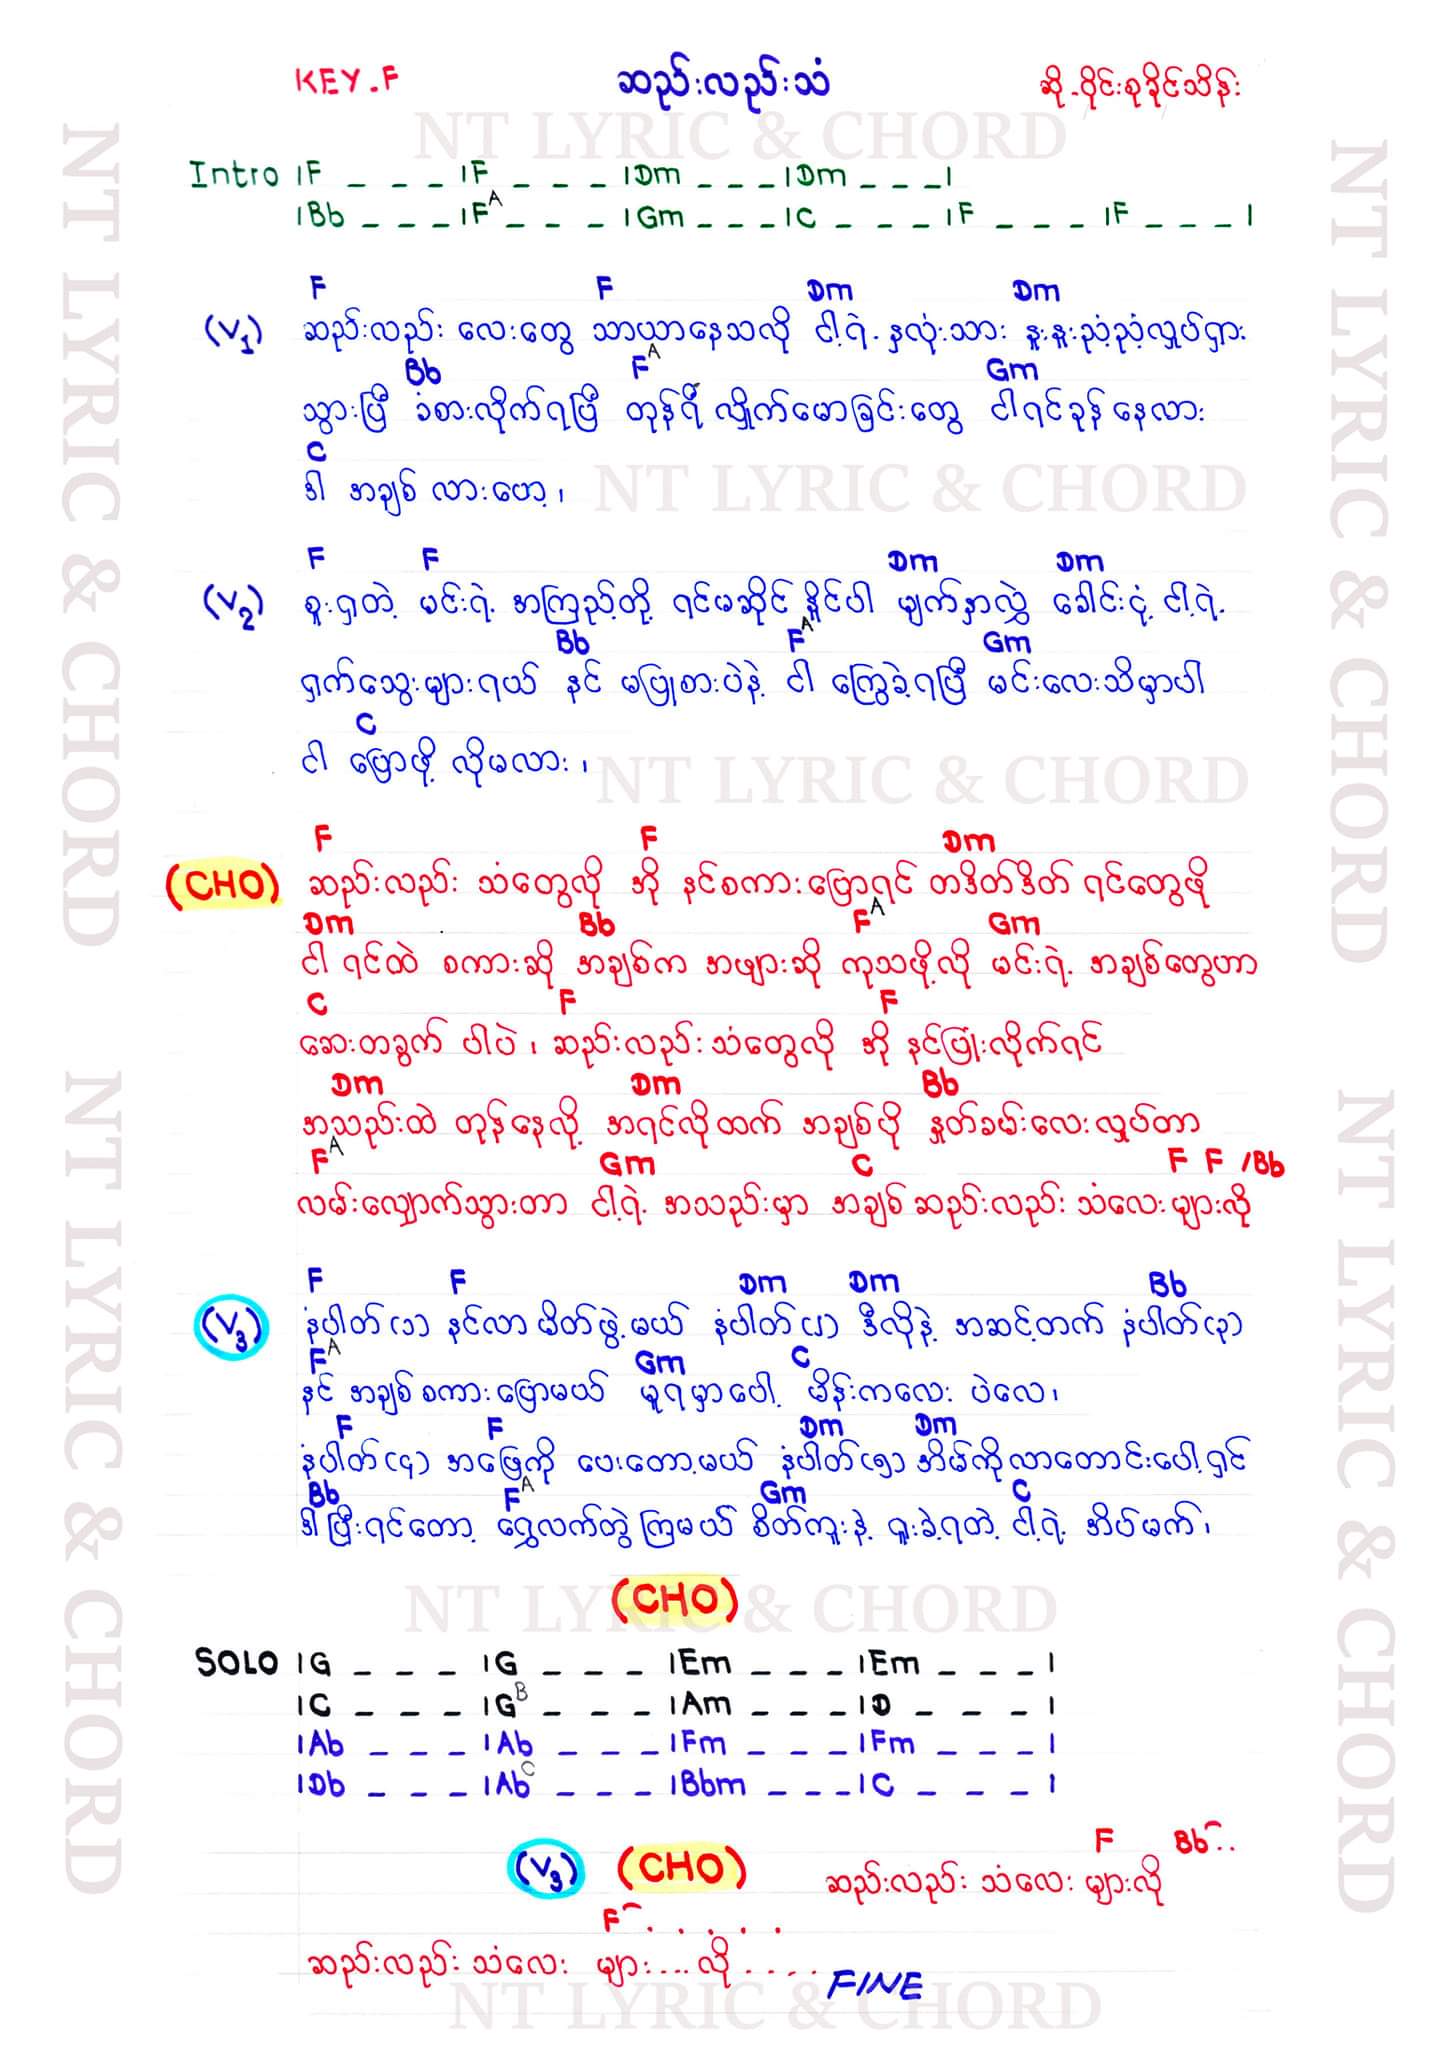 KEY.F ဆည်းလည်းသံ ဆို-ဝိုင်းစုခိုင်သိန်း
NT LYRIC & CHORD
Intro |F _ _ _ |F _ _ _ |Dm _ _ _ |Dm _ _ _ |
|Bb _ _ _ |F A _ _ _ |Gm _ _ _ |C _ _ _ |F _ _ _ |F _ _ _ |
F F Dm Dm
(V1) ဆည်းလည်း လေးတွေ သာယာနေသလို ငါ့ရဲ့ နှလုံးသား နူးနူးညံ့ညံ့လှုပ်ရှား
Bb F A Gm
သွားပြီ ခံစားလိုက်ရပြီ တုန်ရီ လှိုက်မောခြင်းတွေ ငါရင်ခုန် နေလား
C
ဒါ အချစ် လားဟော့၊
NT LYRIC & CHORD
F F Dm Dm
(V2) စူးရှတဲ့ မင်းရဲ့ အကြည့်တို့ ရင်မဆိုင် နိူင်ပါ မျက်နှာလွှဲ ခေါင်းငုံ့ ငါ့ရဲ့
Bb F A Gm
ရှက်သွေးများရယ် နင် မပြုစားပဲနဲ့ ငါ ကြွေခဲ့ရပြီ မင်းလေးသိမှာပါ
C
ငါ ပြောဖို့ လိုမလား၊
NT LYRIC & CHORD
F F Dm
(CHO) ဆည်းလည်း သံတွေလို အို နင်စကားပြောရင် တဒိတ်ဒိတ် ရင်တွေဖို
Dm Bb F A Gm
ငါ ရင်ထဲ စကားဆို အချစ်က အဖျားဆို ကုသဖို့လို မင်းရဲ့ အချစ်တွေဟာ
C F F
ဆေးတခွက် ပါပဲ၊ ဆည်းလည်းသံတွေလို အို နင်ပြုံးလိုက်ရင်
Dm Dm Bb
အသည်းထဲ တုန်နေလို့ အရင်လိုထက် အချစ်ပို နှုတ်ခမ်းလေးလှုပ်တာ
F A Gm C F F /Bb
လမ်းလျှောက်သွားတာ ငါ့ရဲ့ အသည်းမှာ အချစ် ဆည်းလည်း သံလေးများလို
F F Dm Dm Bb
(V3) နံပါတ်(၁) နင်လာ မိတ်ဖွဲ့မယ် နံပါတ်(၂) ဒီလိုနဲ့ အဆင့်တက် နံပါတ်(၃)
F A Gm C
နင် အချစ်စကားပြောမယ် မူရမှာပေါ့ မိန်းကလေး ပဲလေ၊
F F Dm Dm
နံပါတ်(၄) အဖြေကို ပေးတော့မယ် နံပါတ်(၅) အိမ်ကိုလာတောင်းပေါ့ရှင်
Bb F A Gm C
ဒါပြီးရင်တော့ ရွှေလက်တွဲကြမယ် စိတ်ကူးနဲ့ ရူးခဲ့ရတဲ့ ငါ့ရဲ့ အိပ်မက်၊
(CHO)
NT LYRIC & CHORD
SOLO |G _ _ _ |G _ _ _ |Em _ _ _ |Em _ _ _ |
|C _ _ _ |G B _ _ _ |Am _ _ _ |D _ _ _ |
|Ab _ _ _ |Ab _ _ _ |Fm _ _ _ |Fm _ _ _ |
|Db _ _ _ |Ab C _ _ _ |Bbm _ _ _ |C _ _ _ |
F Bb . .
(V3) (CHO) ဆည်းလည်း သံလေး များလို
F . . . . .
ဆည်းလည်း သံလေး များ....လို ....
FINE
NT LYRIC & CHORD
NT LYRIC & CHORD
NT LYRIC & CHORD
NT LYRIC & CHORD
NT LYRIC & CHORD